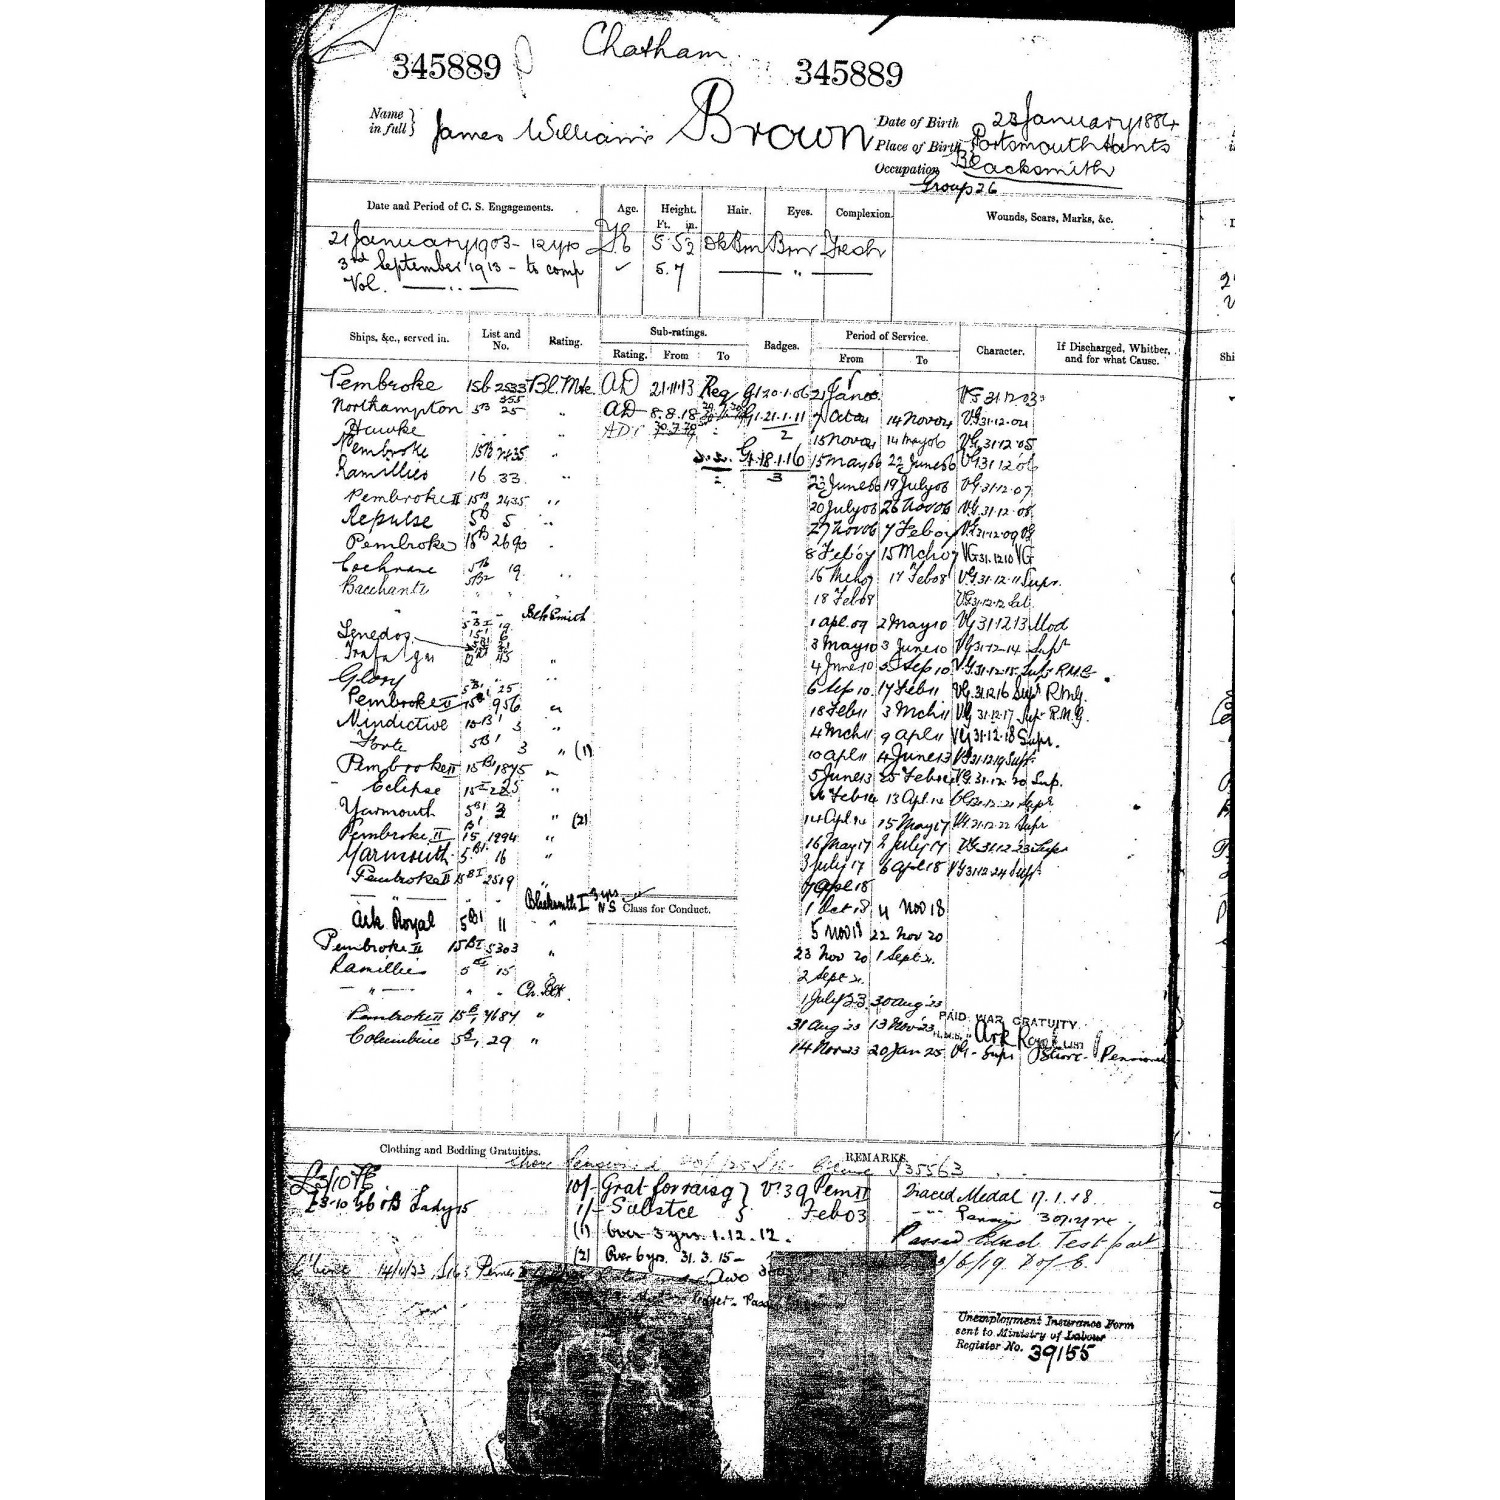 Chatham
345889 345889
Name in full } James William Brown
Date of Birth 23 January 1884
Place of Birth Portsmouth Hants
Occupation Blacksmith
Group 26
Date and Period of C. S. Engagements. Age. Height. Ft. in. Hair. Eyes. Complexion. Wounds, Scars, Marks, &c.
21 January 1903 - 12 yrs 5 5½ Dk Brn Brn Fresh
3rd September 1913 - to comp ✓ 5.7 — " —
Vol. — " —
Ships, &c., served in. List and No. Rating. Sub-ratings. Rating. From To Badges. Period of Service. From To Character. If Discharged, Whither, and for what Cause.
Pembroke 15b 2533 Bl. Mte. AD 21.11.13 Req G1.20.1.06 21 Jan 03 VG 31.12.03
Northampton 5B 25 " AD 8.8.18 G1.21.1.11 2 7 Oct 04 14 Nov 04 VG 31.12.04
Hawke " 15 Nov 04 14 May 06 VG 31.12.05
Pembroke 15B 2435 " G4.18.1.16 3 15 May 06 22 June 06 VG 31.12.06
Ramillies 16 33 " 23 June 06 19 July 06 VG 31.12.07
Pembroke II 15B 2435 " 20 July 06 26 Nov 06 VG 31.12.08
Repulse 5B 5 " 27 Nov 06 7 Feb 07 VG 31.12.09 VG
Pembroke 15B 2690 " 8 Feb 07 15 Mch 07 VG 31.12.10 VG
Cochrane 5B 19 " 16 Mch 07 17 Feb 08 VG 31.12.11 Supr.
Bacchante 5B2 " 18 Feb 08 VG 31.12.12 Sat
" " " Blk Smith 1 Apl. 09 2 May 10 VG 31.12.13 Mod
Tenedos 5BI 19 3 May 10 3 June 10 VG 31.12.14 Supr
Trafalgar " 4 June 10 5 Sep 10 VG 31.12.15 Supr R.M.G.
Glory 5B1 25 " 6 Sep 10 17 Feb 11 VG 31.12.16 Supr R.M.G.
Pembroke II 15B1 956 " 18 Feb 11 3 Mch 11 VG 31.12.17 Supr R.M.G.
Vindictive 10B1 3 " 4 Mch 11 9 Apl 11 VG 31.12.18 Supr.
Forte 5B1 3 " (1) 10 Apl 11 4 June 13 VG 31.12.19 Supr
Pembroke II 15B1 1875 " 5 June 13 25 Feb 14 VG 31.12.20 Sup.
Eclipse 15I 225 " 26 Feb 14 13 Apl. 14 VG 31.12.21 Supr
Yarmouth 5B1 3 " (2) 14 Apl. 14 15 May 17 VG 31.12.22 Supr
Pembroke II 15B1 1994 " 16 May 17 2 July 17 VG 31.12.23 Supr
Yarmouth 5B1 16 " 3 July 17 6 Apl 18 VG 31.12.24 Supr
Pembroke II 15BI 2519 " 7 Apl 18
" " Blacksmith I 3 yrs NS Class for Conduct. 1 Oct 18 4 Nov 18
Ark Royal 5B1 11 " 5 Nov 18 22 Nov 20
Pembroke II 15BI 5303 " 23 Nov 20 1 Sept 21
Ramillies 5BI 15 " 2 Sept 21
— " — " " Ch. Blk. 1 July 23 30 Aug '23
Pembroke II 15B1 4684 " 31 Aug '23 13 Nov '23 PAID WAR GRATUITY
H.M.S. Ark Royal LIST
Columbine 5B1 29 " 14 Nov 23 20 Jan 25 VG - Supr Shore Pensioned
Clothing and Bedding Gratuities. REMARKS.
Shore Pensioned J35563
£3/10 10/- Grat for raisg } V. 39 Pem II Traced Medal 17.1.18
£3-10 Lady 15 1/- Substce } Feb 03 " " Pension
(1) Over 3 yrs. 1.12.12. Passed Educl Test part
(2) Over 6 yrs. 31.3.15 - /6/19.
14/11/23
Unemployment Insurance Form
sent to Ministry of Labour
Register No. 39155